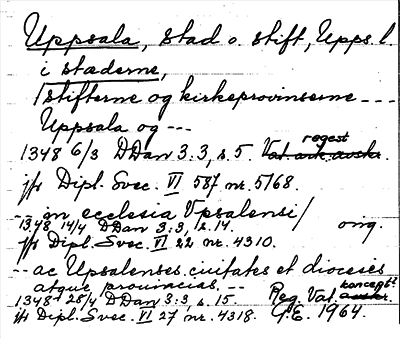 Uppsala, stad o. stift, Upps. l
i stæderne,
/stifterne og kirkeprovinserne ---
Uppsala og ---
regest
1348 6/3 DDan 3:3, s. 5. Vat. ark. avskr.
jfr Dipl. Svec. VI 587 nr. 5168.
-- in ecclesia Vpsalensi/
1348 14/4 DDan 3:3, s. 14. orig.
jfr Dipl. Svec. VI 22 nr. 4310.
-- ac Upsalenses ciuitates et dioceses
atque prouincias. --
koncept
1348 28/4 DDan 3:3, s. 15. Reg. Vat. avskr.
jfr Dipl. Svec. VI 27 nr. 4318. G.E. 1964.